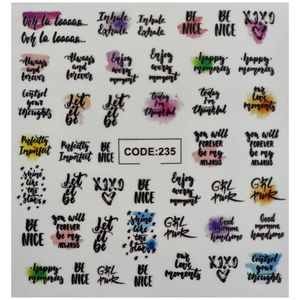 Ooh la laaaa...
Ooh la laaaa...
Inhale
Exhale
Inhale
Exhale
BE
NICE
BE
NICE
XOXO
Always
and
forever
Always
and
forever
Enjoy
every
moment
Enjoy
every
moment
happy
memories
happy
memories
Control
your
thoughts
Let
it
be
Let
it
be
Today
I'm
thankful
Today
I'm
thankful
BE
NICE
our
love
moments
Perfectly
Imperfect
Perfectly
Imperfect
BE
NICE
CODE:235
you will
FOREVER
be my
ALWAYS
BE
NICE
Let
it
be
shine
like
the
stars
Let
it
be
XOXO
BE
NICE
Enjoy
every
moment
GRL
PWR
GRL
PWR
XOXO
BE
NICE
you will
FOREVER
be my
ALWAYS
BE
NICE
shine
like
the
stars
GRL
PWR
Good
morning
handsome
Good
morning
handsome
happy
memories
BE
NICE
GRL
PWR
you will
FOREVER
be my
ALWAYS
our
love
moments
XOXO
Control
your
thoughts